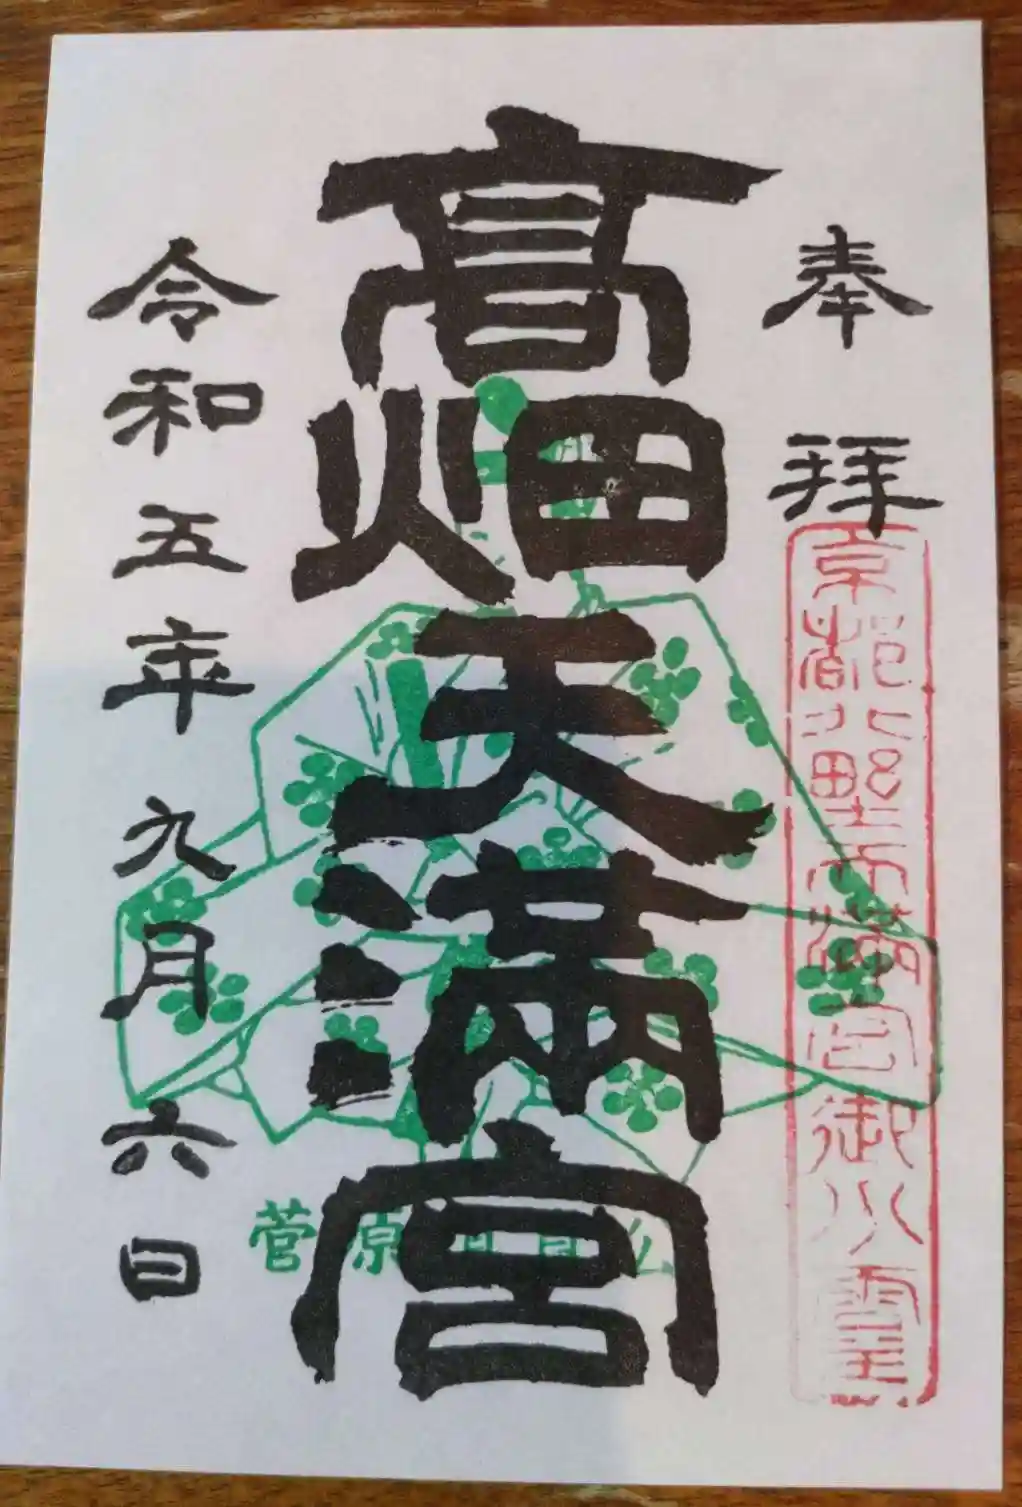 奉拝
京都北野天満宮御分霊
髙畑天満宮
菅原道真公
令和五年九月六日